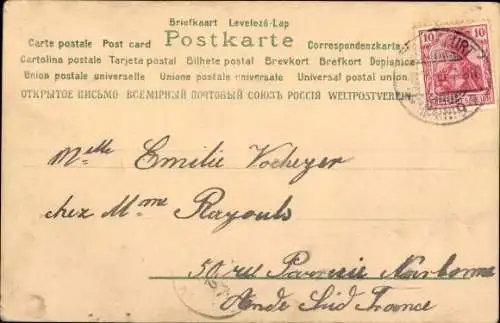 Briefkaart Levelező-Lap
Carte postale Post card Postkarte Correspondenzkarte
Cartolina postale Tarjeta postal Bilhete postal Brevkort Brefkort Dopisnice
Union postale universelle Unione postale universale Universal postal union
ОТКРЫТОЕ ПИСЬМО ВСЕМІРНЫЙ ПОЧТОВЫЙ СОЮЗЪ РОССІЯ WELTPOSTVEREIN
10 10
Melle Emilie Vocheyer
chez Mme Rayouls
50 rue Narbonne
Aude Sud France